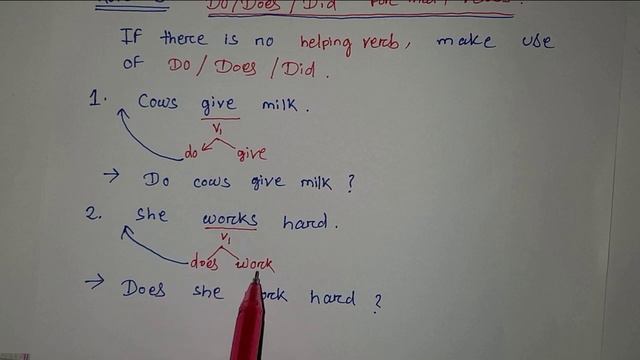 Do/Does/Did
If there is no helping verb, make use
of Do/Does/Did.
1. Cows give milk.
V1
do give
→ Do cows give milk?
2. She works hard.
V1
does work
→ Does she hard?